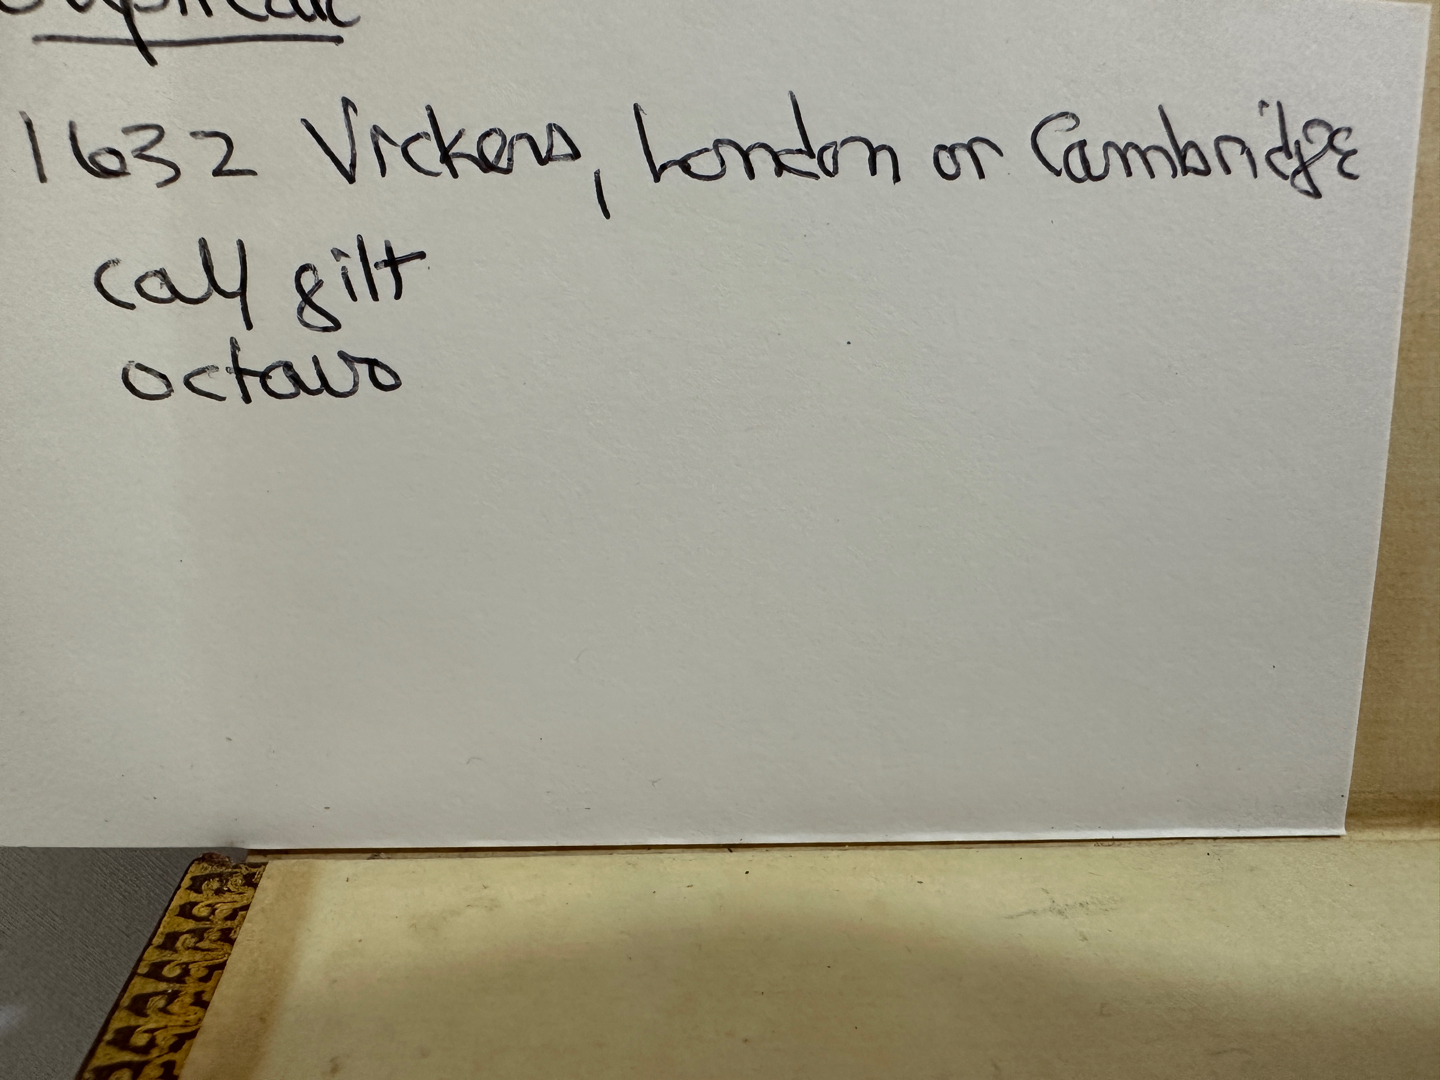 Duplicate
1632 Vickers, London or Cambridge
calf gilt
octavo